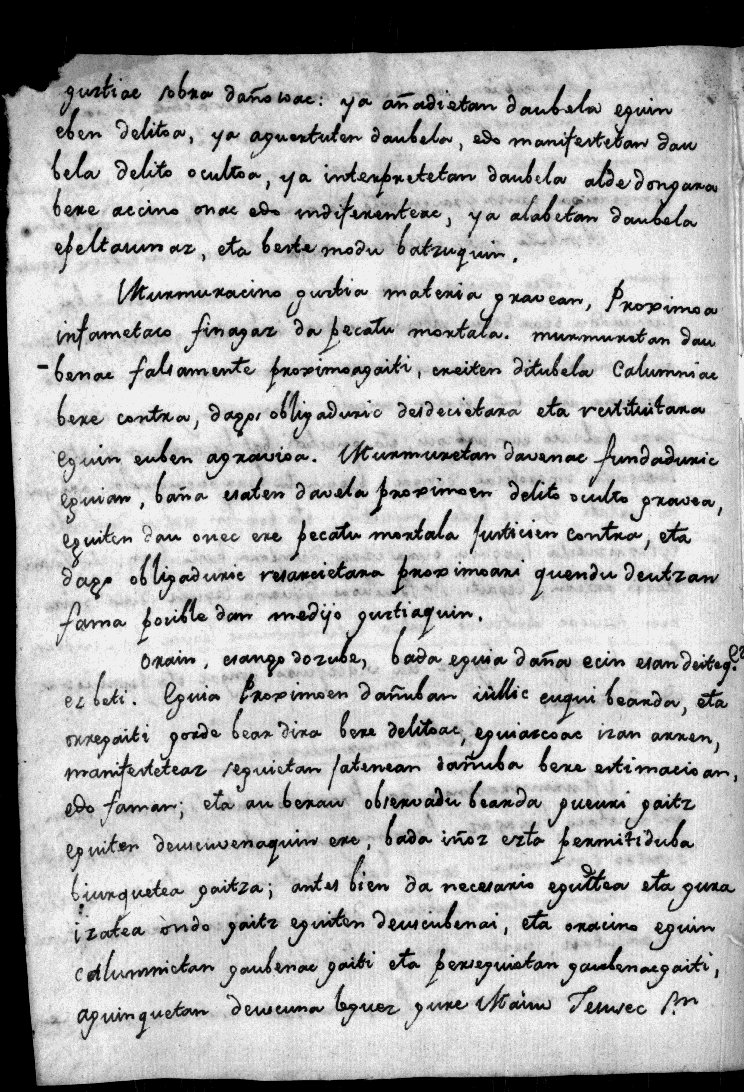 gustiac sobra dañosoac: ya añadietan daubela eguin
eben delitoa, ya aguertuten daubela, edo manifestetan dau
bela delito ocultoa, ya interpretetan daubela alde dongara
bere accino onac edo indiferentere, ya alabetan daubela
epeltasunaz, eta beste modu batzuquin.
Murmuracino gustia materia gravean, Proximoa
infametaco finagaz da pecatu mortala. murmuretan dau
-benac falsamente proximoagaiti, creiten ditubela Calumniac
bere contra, dago obligaduric desdecietara eta restituitara
eguin euben agravioa. Murmuretan davenac fundaduric
eguian, baña esaten davela proximoen delito oculto gravea,
eguiten dau onec ere pecatu mortala justicien contra, eta
dago obligaduric resarcietara proximoari quendu deutzan
fama posible dan medijo gustiaquin.
Orain, esango dozube, bada eguia daña ecin esan deiteq.e
ez beti. Eguia Proximoen dañuban isillic euqui bearda, eta
orregaiti gorde bear dira bere delitoac, eguiazcoac izan arren,
manifesteteaz seguietan jatenean dañuba bere estimacioan,
edo faman; eta au berau observadu bearda gueuri gaitz
eguiten deuscuenaquin ere, bada iñoz ezta permitiduba
biurquetea gaitza; antes bien da necesario eguitea eta gura
izatea ondo gaitz eguiten deuscubenai, eta oracino eguin
calumnietan gaubenac gaiti eta perseguietan gaubenacgaiti,
aguinquetan deuscuna leguez gure Maisu Jesusec S.n